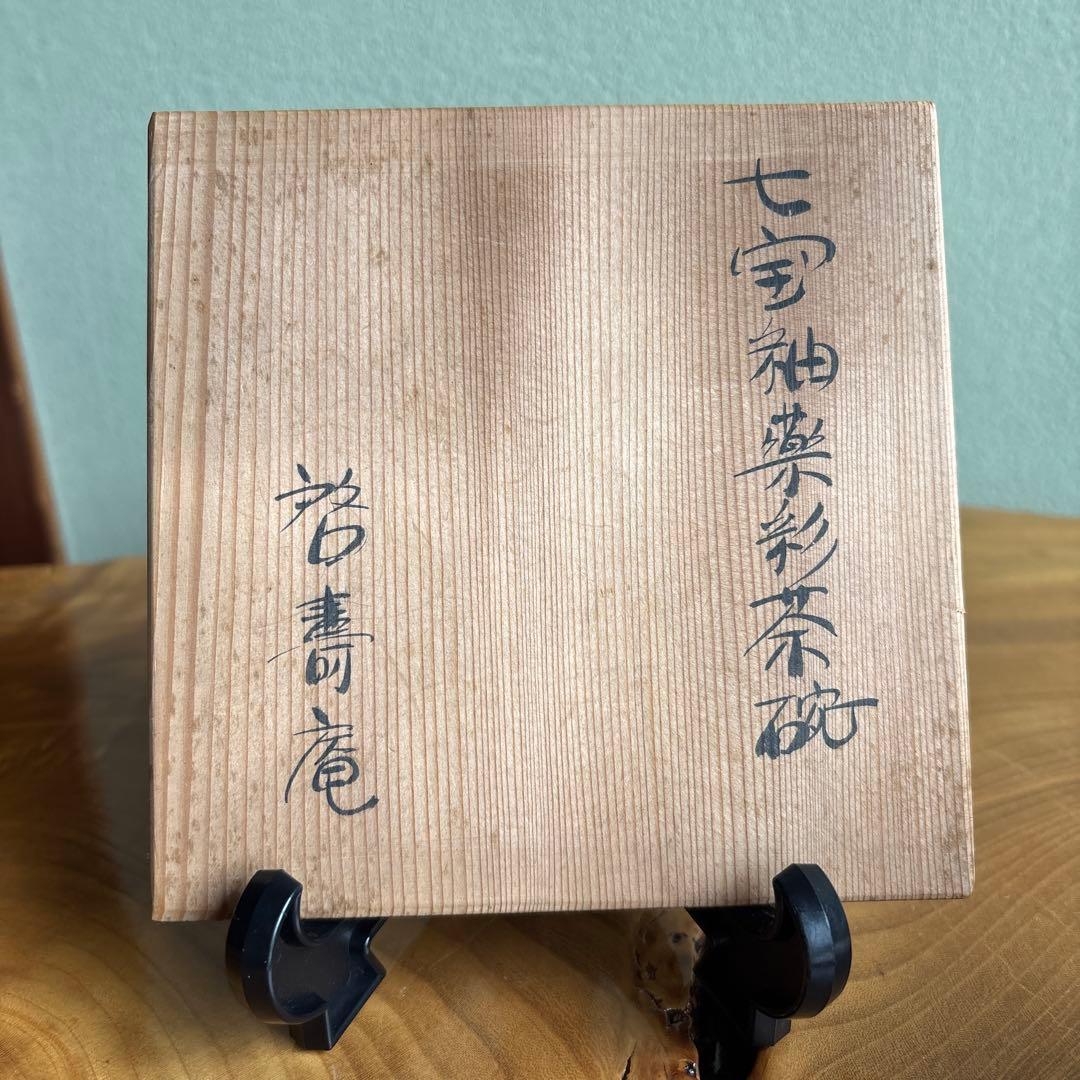 七宝釉薬彩茶碗
啓壽庵